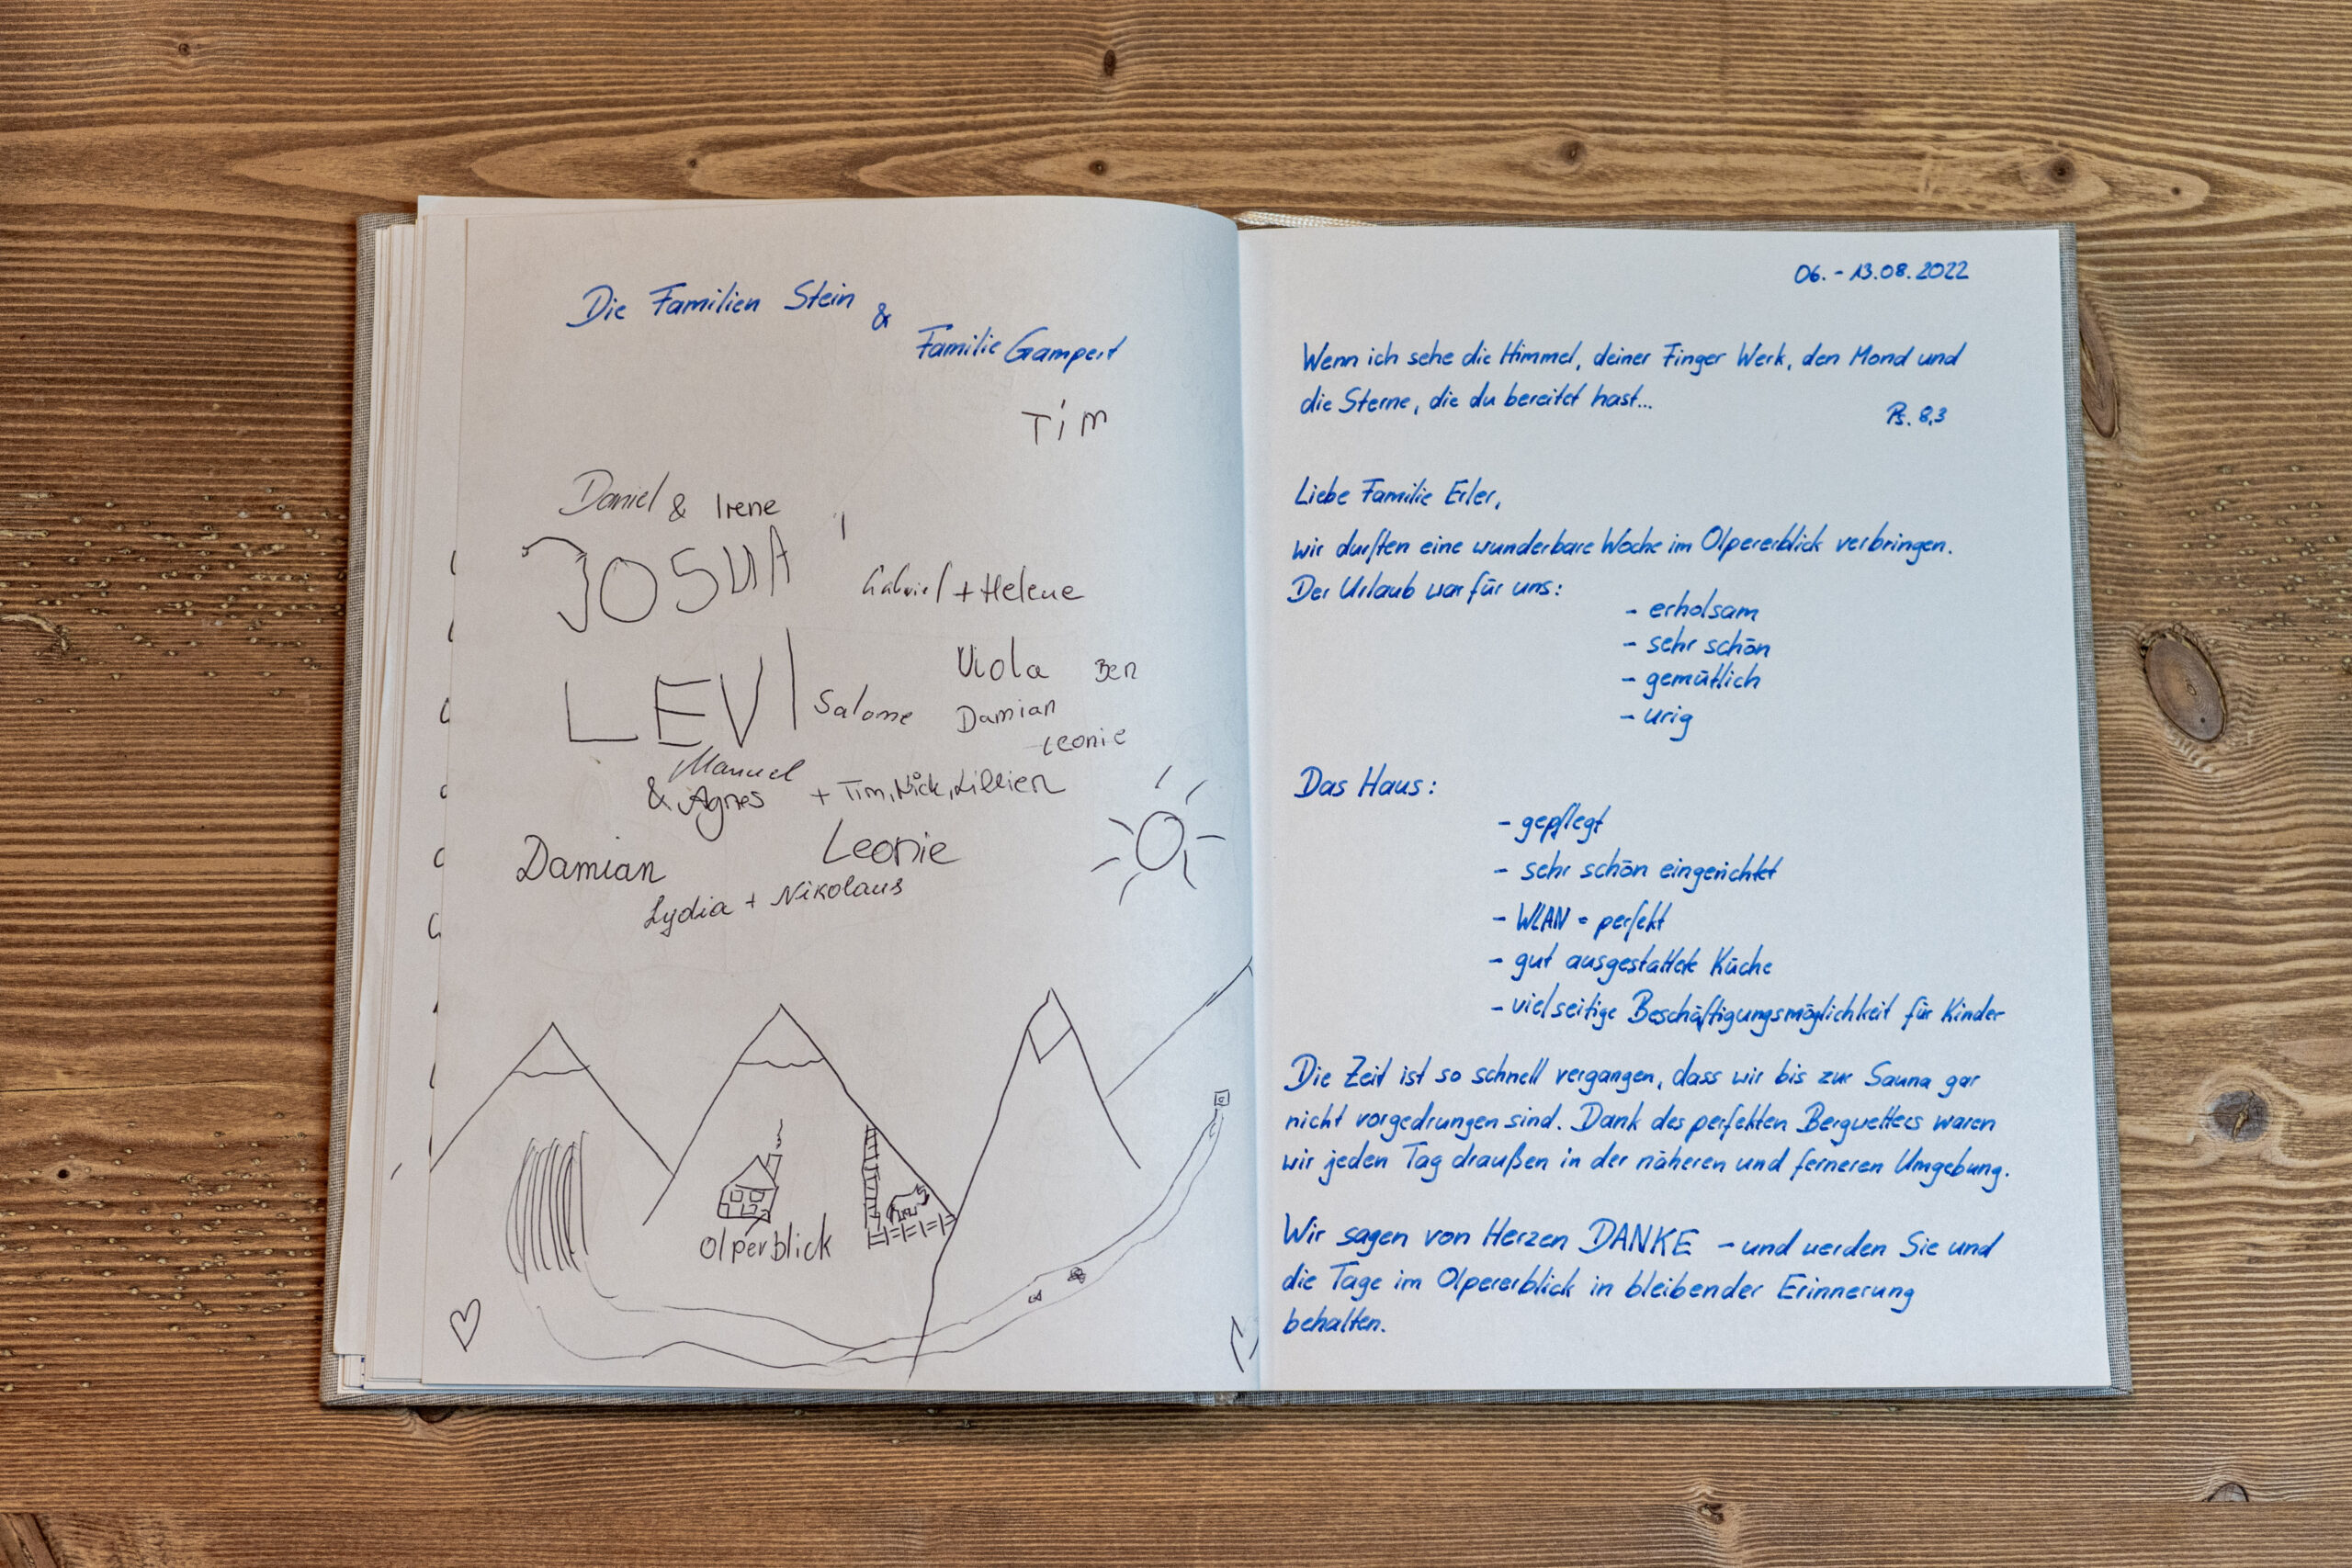 Die Familien Stein
&
Familie Gampert
Tim
Daniel & Irene
JOSUA
Gabriel + Helene
LEVI
Viola Ben
Salome Damian
Leonie
Manuel
& Agnes + Tim, Nick, Lillien
Damian Leonie
Lydia + Nikolaus
Olperblick
06. - 13.08.2022
Wenn ich sehe die Himmel, deiner Finger Werk, den Mond und
die Sterne, die du bereitet hast...
Ps. 8,3
Liebe Familie Erler,
wir durften eine wunderbare Woche im Olpererblick verbringen.
Der Urlaub war für uns:
- erholsam
- sehr schön
- gemütlich
- urig
Das Haus:
- gepflegt
- sehr schön eingerichtet
- WLAN = perfekt
- gut ausgestattete Küche
- vielseitige Beschäftigungsmöglichkeit für Kinder
Die Zeit ist so schnell vergangen, dass wir bis zur Sauna gar
nicht vorgedrungen sind. Dank des perfekten Bergwetters waren
wir jeden Tag draußen in der näheren und ferneren Umgebung.
Wir sagen von Herzen DANKE - und werden Sie und
die Tage im Olpererblick in bleibender Erinnerung
behalten.